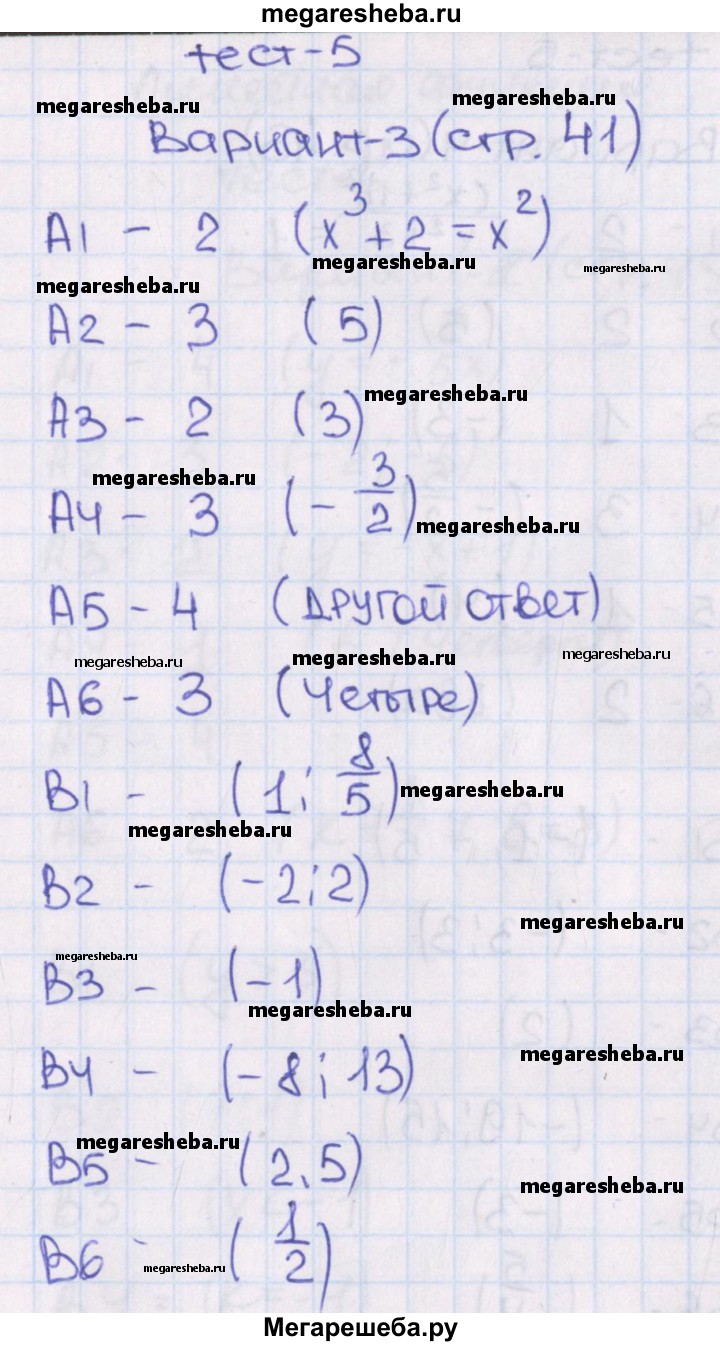 megaresheba.ru
тест-5
megaresheba.ru megaresheba.ru
Вариант-3 (стр. 41)
A1 - 2 (x³ + 2 = x²)
megaresheba.ru megaresheba.ru
megaresheba.ru
A2 - 3 (5)
megaresheba.ru
A3 - 2 (3)
megaresheba.ru
A4 - 3 (- 3/2)
megaresheba.ru
A5 - 4 (ДРУГОЙ ОТВЕТ)
megaresheba.ru megaresheba.ru megaresheba.ru
A6 - 3 (Четыре)
B1 - (1; 8/5)
megaresheba.ru
megaresheba.ru
B2 - (-2; 2)
megaresheba.ru
megaresheba.ru
B3 - (-1)
megaresheba.ru
megaresheba.ru
B4 - (-8; 13)
megaresheba.ru
B5 - (2,5)
megaresheba.ru
B6 - (1/2)
megaresheba.ru
Мегарешеба.ру